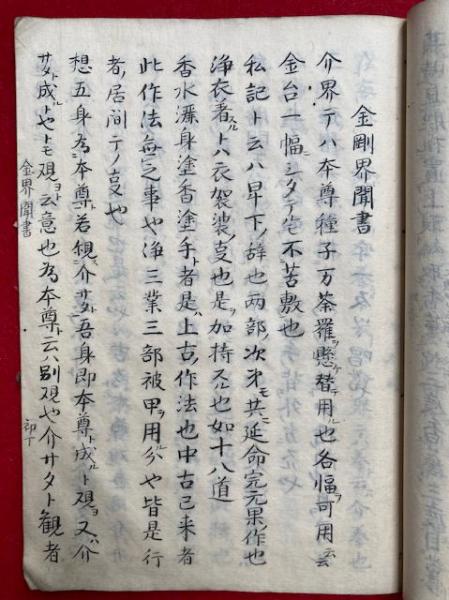 金剛界聞書
介界テハ本尊種子万荼羅ヲ懸替テ用ル也各幅可用ヲ云
金台一幅ニシタテモ不苦敷也
私記ト云ハ早下ノ辞也両部ノ次才共ニモ延命完元果作也
浄衣着スルトハ衣袈裟ノ支也是ノ加持ヌル也如十八道
香水灑身塗香塗手ト者是ハ上古ノ作法也中古已来者
此作法無之事や浄三業三部被甲ヲ用ル分や皆是行
者ノ居間テノ支や
想五身為本尊若観ト介サタト吾身即本尊ト成ルト観ヨ又ハ介
サタト成ルトヤトモ観ヨト云意也為本尊ト云ハ別観や介サタト観者
金界聞書
初丁